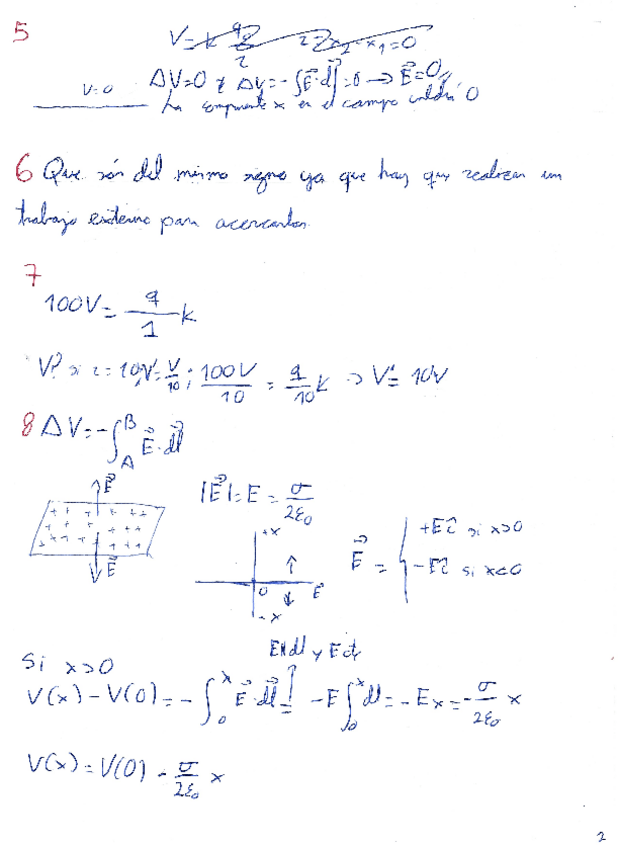 5
ΔV=0 y ΔV=-∫E⃗·dl⃗=0 → E⃗=0
V=0
La componente x en el campo valdrá 0
6 Que són del mismo signo ya que hay que realizar un
trabajo externo para acercarlas.
7
100V = q/1 k
V? si r=10; V'=V/10; 100V/10 = q/10 k → V'=10V
8 ΔV=-∫_A^B E⃗·dl⃗
E⃗
|E⃗|=E=σ/2ε₀
+ + + + + +
E⃗
+x
0
E⃗
-x
E⃗ = { +Eî si x>0
-Eî si x<0
E∥dl y E cte
Si x>0
V(x)-V(0)=-∫₀^x E⃗·dl⃗ = -E∫₀^x dl=-Ex=-σ/2ε₀ x
V(x)=V(0)-σ/2ε₀ x
2